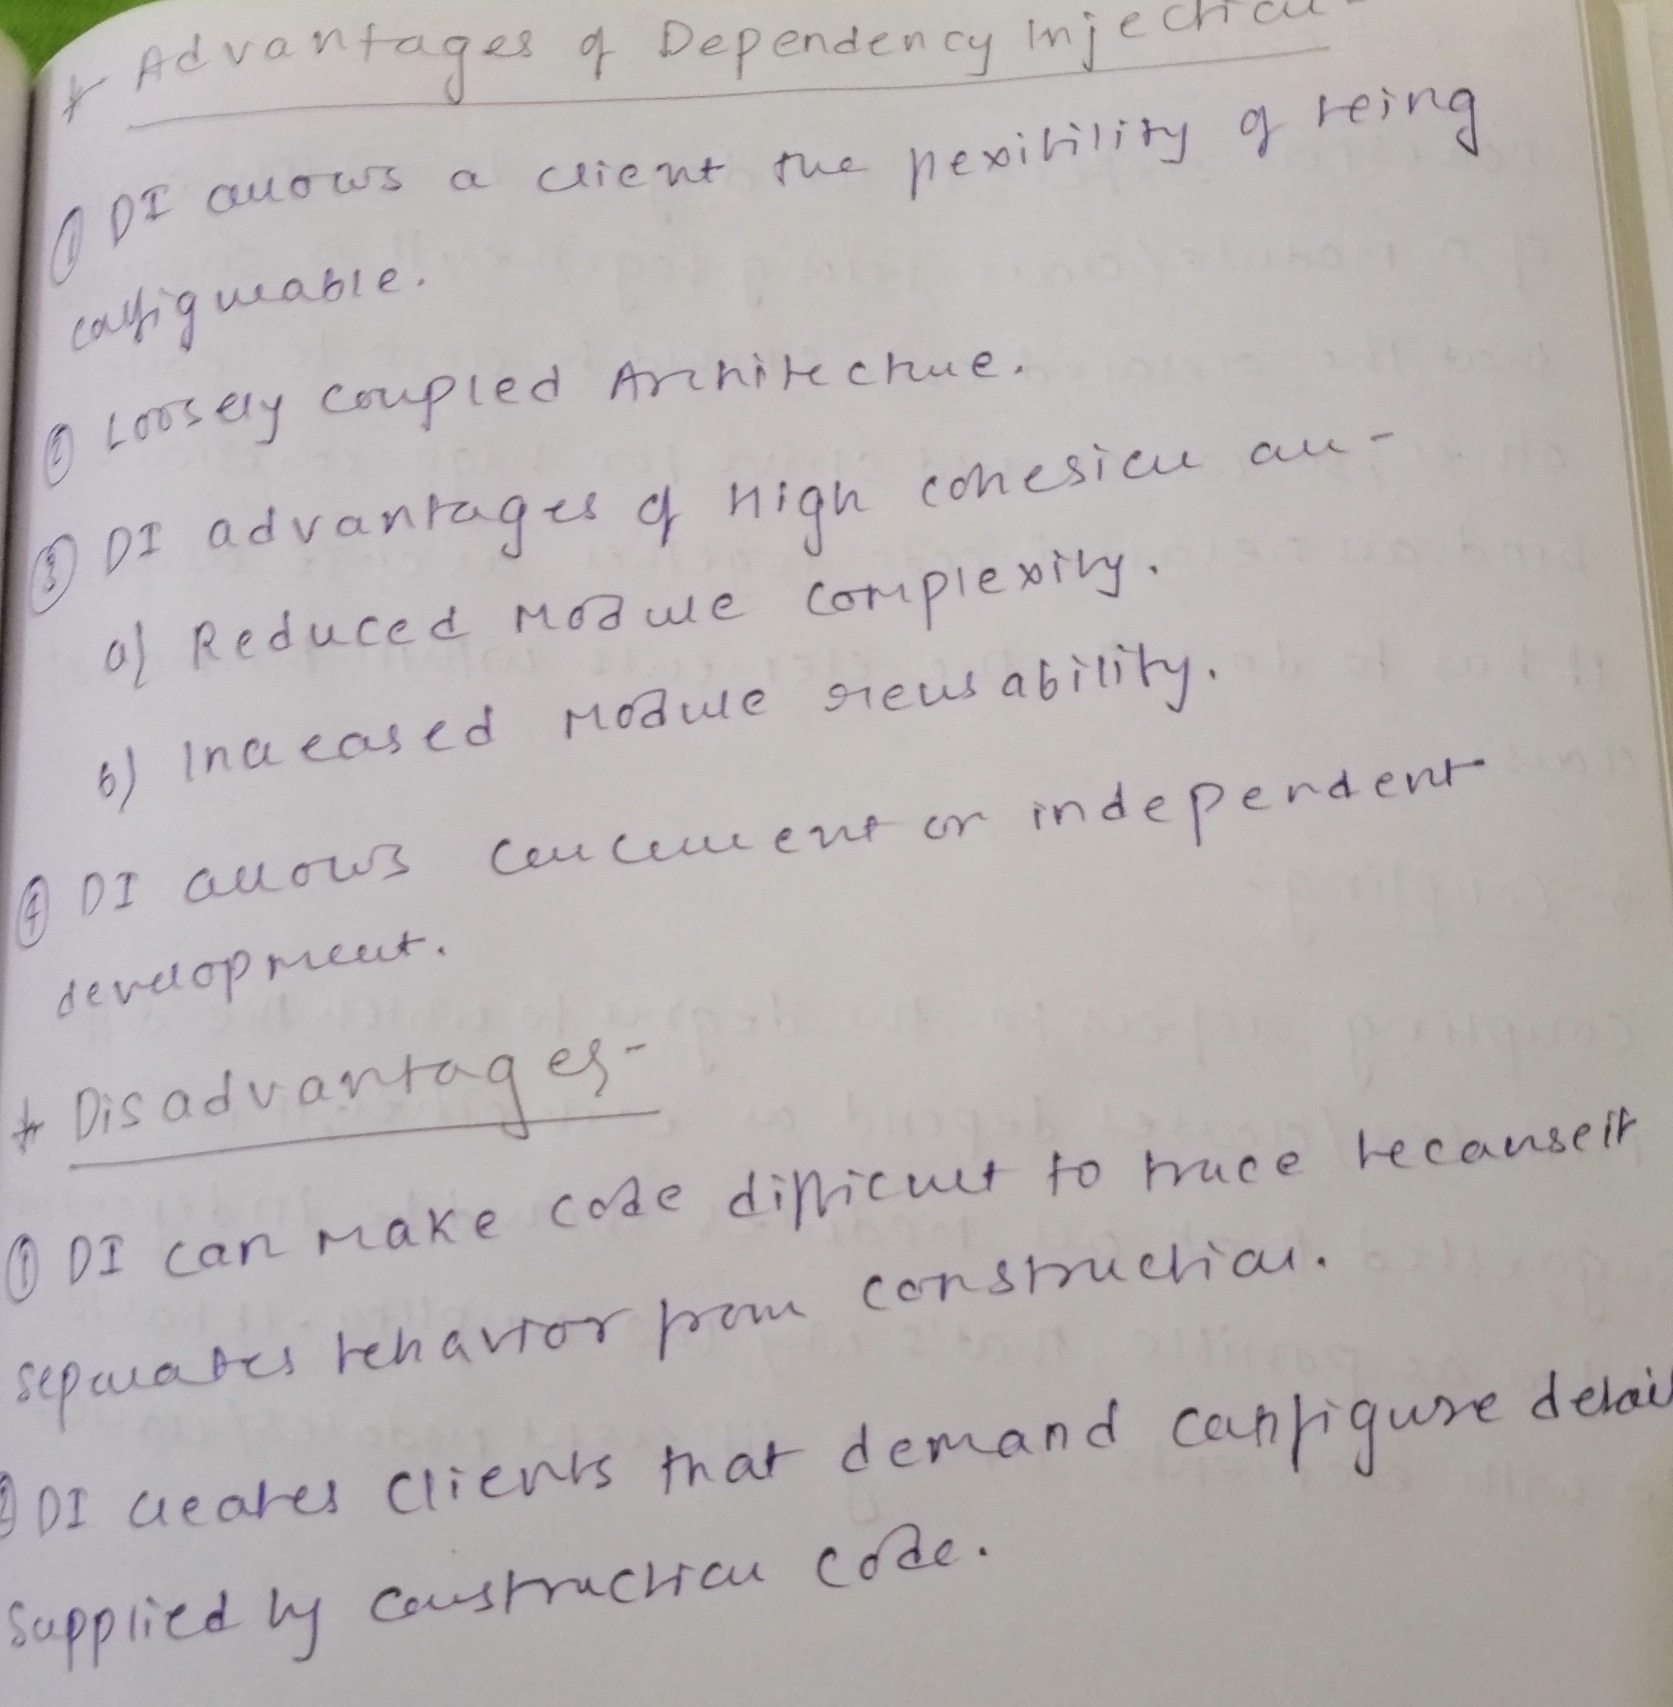 * Advantages of Dependency Injection
① DI allows a client the flexibility of being
configurable.
② Loosely coupled Architecture.
③ DI advantages of High cohesion are -
a) Reduced Module complexity.
b) Increased Module reusability.
④ DI allows concurrent or independent
development.
* Disadvantages -
① DI can make code difficult to trace because it
separates behavior from construction.
② DI creates clients that demand configure detail
supplied by construction code.